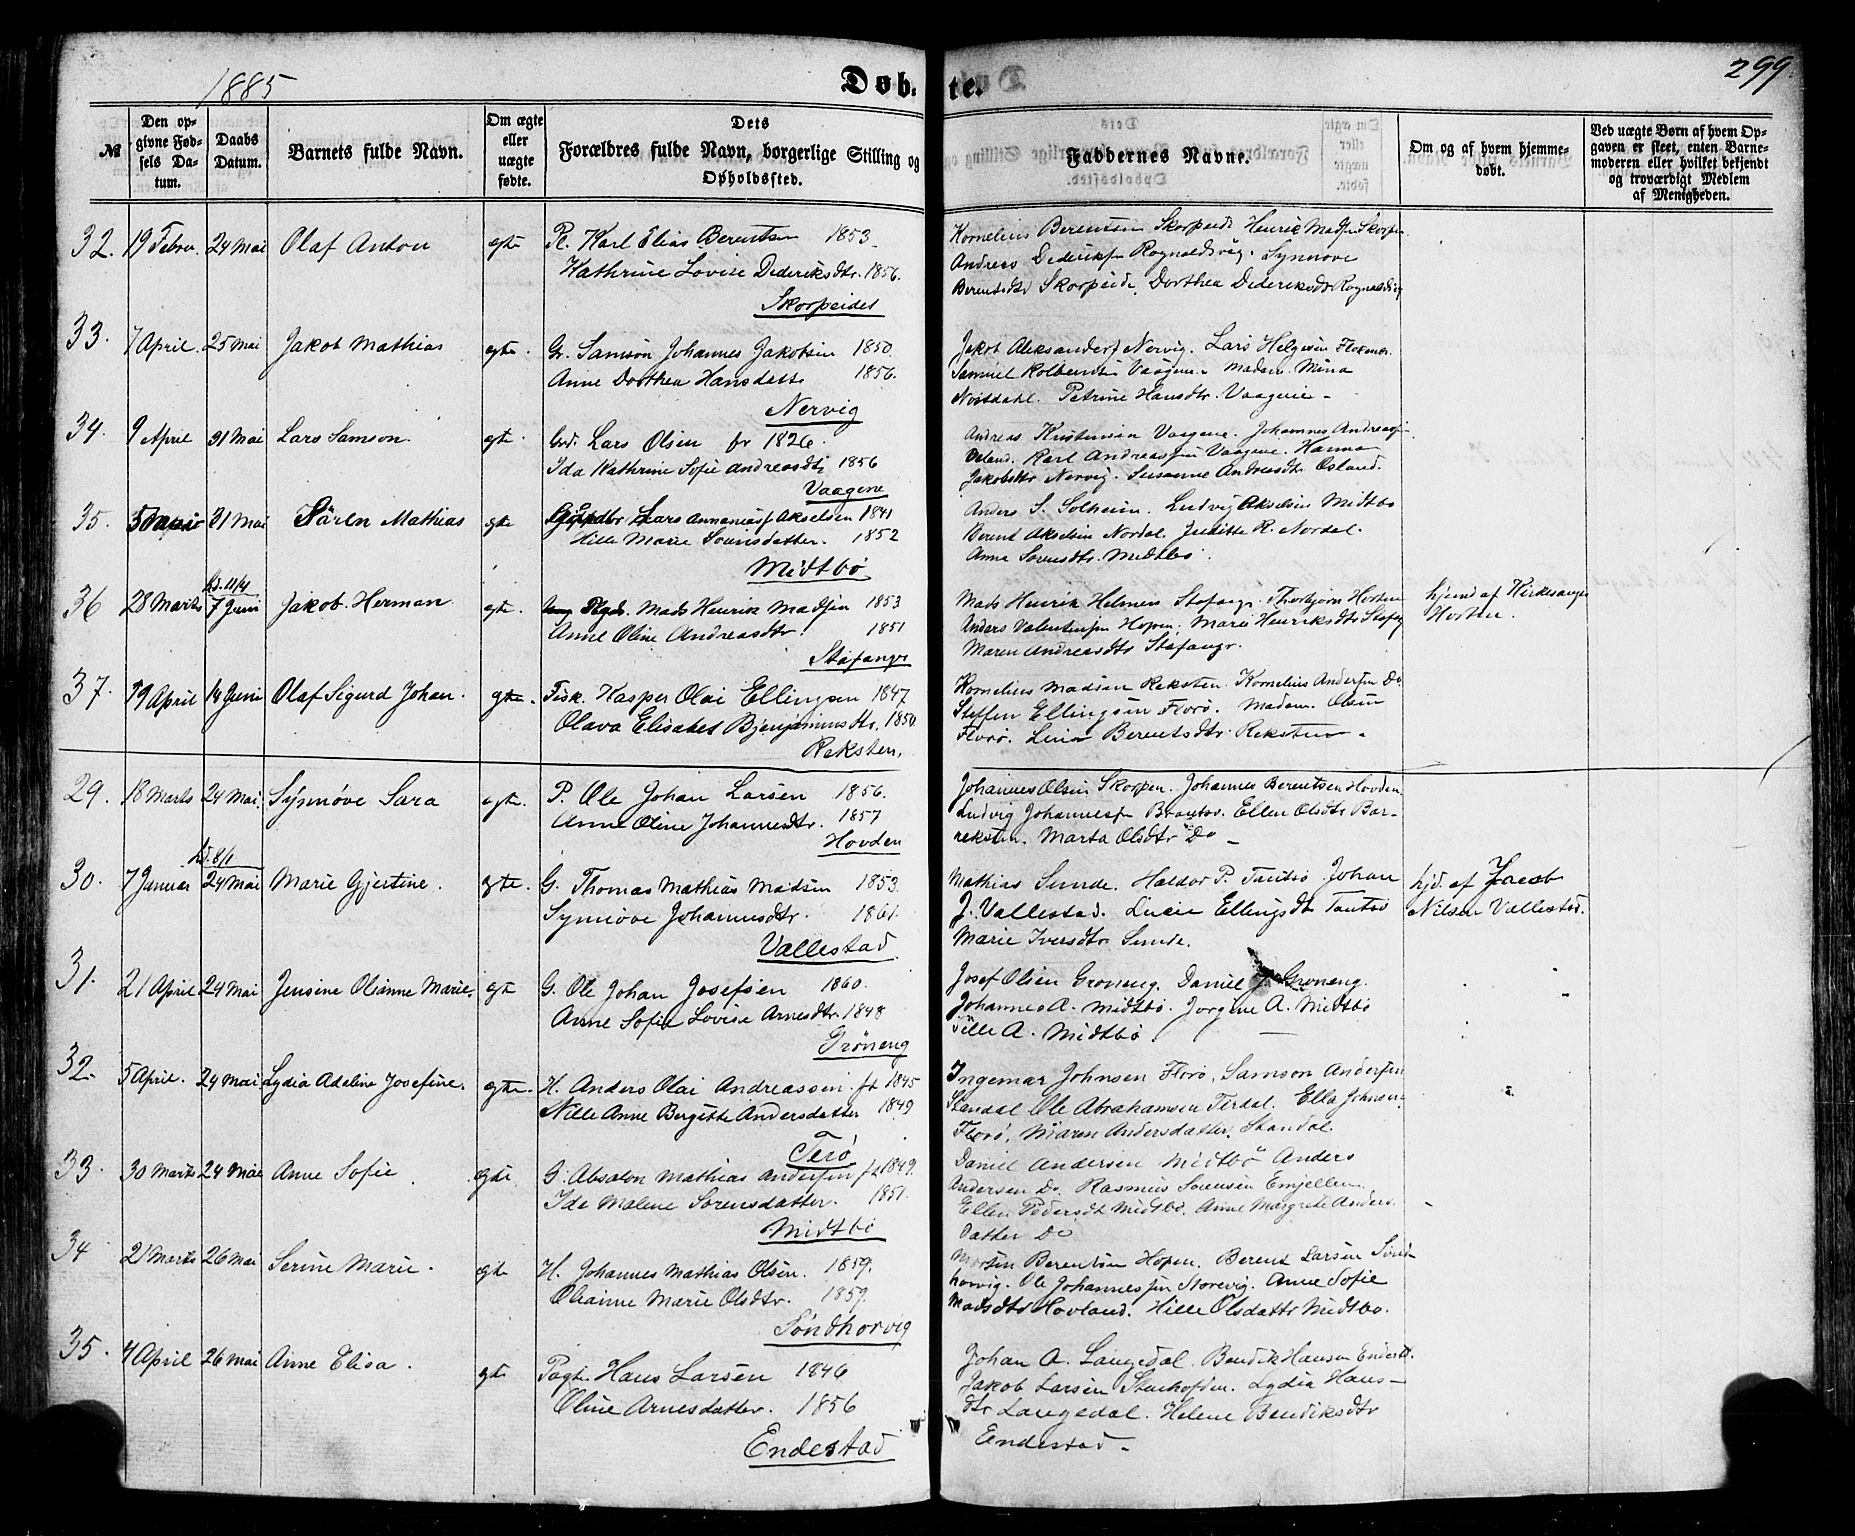 1885
Døbte.
299
№
Den opgivne Fødsels Datum.
Daabs Datum.
Barnets fulde Navn.
Om ægte eller uægte fødte.
Dets Forældres fulde Navn, borgerlige Stilling og Opholdssted.
Faddernes Navne.
Om og af hvem hjemmedøbt.
Ved uægte Børn af hvem Opgaven er skeet, enten Barnemoderen eller hvilket bekjendt og troværdigt Medlem af Menigheden.
32. 19 Febru. 24 Mai Olaf Anton egte P. Karl Elias Berentsen 1853.
Kathrine Lovise Dideriksdtr. 1856.
Skorpeidet
Kornelius Berentsen Skorpeide Henrik Madsen Skorpen
Andreas Dideriksen Rognaldsvåg. Synnøve
Berentsdtr Skorpeide. Dorthea Dideriksdtr Rognaldsvåg
33. 7 April. 25 Mai Jakob Mathias egte. G. Samson Johannes Jakobsen 1850.
Anne Dorthea Hansdatter 1856.
Nervig
Jakob Aleksanders. Nervig. Lars Helgesen Florenes.
Samuel Kolbentsen Vaagene. Madam. Mina
Nostdahl. Petrine Hansdtr. Vaagene -
34. 9 April 31 Mai Lars Samson egte. Lars Olsen fr 1826.
Ida Kathrine Sofie Andreasdtr 1856
Vaagene
Andreas Kristensen Vaagene. Johannes Andreass-
Osland. Karl Andreassen Vaagene. Hanna
Jakobsdtr Nervig. Susanne Andreasdtr Osland.
35. 31 Mai Sören Mathias egte Lars Annanias Akselsen 1841
Hille Marie Sørensdatter. 1852
Midtbö
Anders S. Solheim. Ludvig Akselsen Midtbø
Berent Akselsen Nordal. Juditte R. Nordal.
Anna Sørensdtr. Midtbø.
hd. 11/4
36 28 Marts 7 Juni Jakob Herman egte. Mads Henrik Madsen 1853
Anne Oline Andreasdtr. 1851
Stafangr
Mads Henrik Helmers Stafangr. Thorbjørn Horten
Anders Valentinsen Hopen. Marie Henriksdtr Stafag
Maren Andreasdtr Stafangr.
hjemd af Kirkesanger
Horten.
37. 19 April 14 Juni Olaf Sigurd Johan. egte. Fisk. Kasper Olai Ellingsen 1847
Olava Elisabet Bjenjaminsdtr. 1850
Reksten.
Kornelius Madsen Reksten. Kornelius Andersen Do
Steffen Ellingsen Florø. Madam. Olsen
Florø. Lina Berentsdtr. Reksten -
29. 18 Marts 24 Mai. Synnøve Sara egte. P. Ole Johan Larsen 1856.
Anne Oline Johannesdtr. 1857
Hovden
Johannes Olsen Skorpen. Johannes Berentsen Hovden.
Ludvig Johannessen Brantsø. Ellen Olsdtr Bar-
reksten. Marta Olsdtr Do -
hd. 8/1
30. 7 Januar 24 Mai Marie Gjertine. egte. G. Thomas Mathias Madsen 1853.
Synnøve Johannesdtr. 1861.
Vallestad
Mathias Sunde. Haldor P. Tantsø Johan
J. Vallestad. Lucie Ellingsdt Tantsø
Marie Iversdtr Sunde.
hjd. af Jacob
Nilsen Vallestad.
31. 21 April 24 Mai Jensine Olianne Marie. egte G. Ole Johan Josefsen 1860.
Anne Sofie Lovise Arnesdtr. 1848
Grøneng
Josef Olsen Grøneng. Daniel J. Grøneng.
Johannes A. Midtbø. Jorgine A. Midtbø
A. Midtbø.
32. 5 April. 24 Mai Lydia Adeline Josefine. egte. H. Anders Olai Andreassen. fd 1845
Nille Anne Bergitte Andersdatter 1849
Terø
Ingemar Johnsen Florø. Samson Andersen
Standal Ole Abrahamsen Terdal. Ella Johnsen
Florø. Maren Andersdatter. Standal.
33 30 Marts 24 Mai Anne Sofie egte G. Absalon Mathias Andersen fd 1849.
Ida Malene Sørensdatter. 1851.
Midtbø
Daniel Andersen Midtbø Anders
Andersen Do. Rasmus Sørensen Emjellen
Ellen Pedersdt Midtbø. Anne Margrete Anders-
datter Do
34 21 Marts 26 Mai Serine Marie. egte H. Johannes Mathias Olsen. 1859.
Olianne Marie Olsdtr. 1859.
Söndhorvig
Morten Berentsen Hopen. Berent Larsen Sönd-
horvig. Ole Johannessen Storevig. Anne Sofie
Madsdtr Hovland. Hille Olsdattr Midtbø.
35. 4 April 26 Mai Anne Elisa. egte Pagt. Hans Larsen 1846
Oline Arnesdatter. 1856
Endestad
Johan A. Langedal. Bendik Hansen Endestd.
Jakob Larsen Stenhofden. Lydia Hans-
dtr Langedal. Helene Bendiksdtr
Endestad -